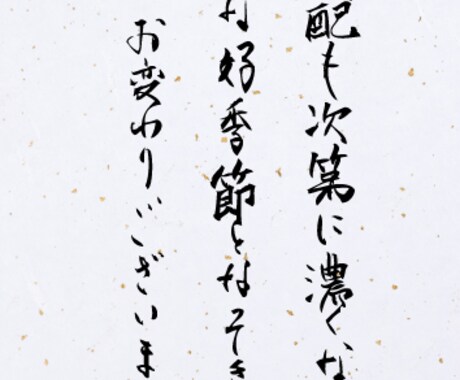 配も次第に濃くな
な好季節となってき
お変わりございま